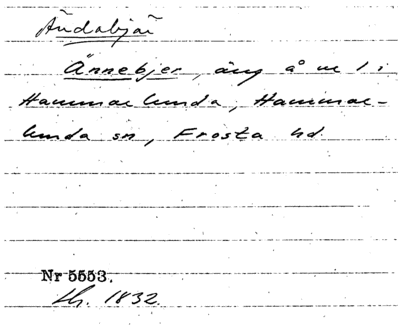 Ändabjär
Ännebjer, äng å nr 1 i
Hammarlunda, Hammar-
lunda sn, Frosta hd.
Nr 5553.
1832.